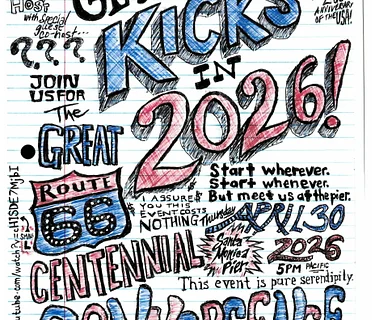 HOST
with Special
Guest
Co-host...
? ? ?
KICKS
IN
2026!
ANNIVERSARY
OF THE USA!
JOIN
US FOR
The
GREAT
ROUTE
66
CENTENNIAL
Start wherever.
Start whenever.
But meet us at the pier.
I ASSURE
YOU THIS
EVENT COSTS
NOTHING
Thursday
APRIL 30
2026
Santa
Monica
Pier
5PM PACIFIC
This event is pure serendipity.